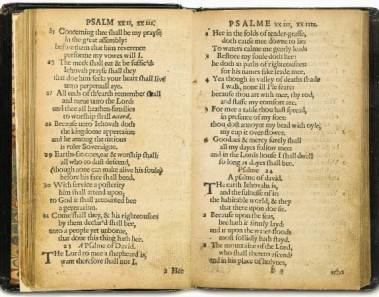 PSALM XXII, XXIII.
25 Concerning thee shall be my prayse
in the great assembly:
before them that him reverence
performe my vowes will I.
26 The meek shall eat & be suffic'd
Iehovah prayse shall they
that doe him seek: your heart shall live
unto perpetuall aye.
27 All ends of th'earth remember shall
and turne unto the Lord:
and thee all heathen-families
to worship shall accord.
28 Because unto Iehovah doth
the kingdome appertaine:
and he among the nations
is ruler Soveraigne.
29 Earth's-fat-ones, eat & worship shall:
all who to dust descend,
(though none can make alive his soule)
before his face shall bend.
30 With service a posterity
him shall attend upon;
to God it shall accounted bee
a generation.
31 Come shall they, & his righteousnes
by them declar'd shall bee,
unto a people yet unborne,
that done this thing hath hee.
23 A Psalme of David.
THe Lord to mee a shepheard is,
want therefore shall not I.
2 Hee
PSALME XXIII, XXIIII.
2 Hee in the folds of tender-grasse,
doth cause mee downe to lie:
To waters calme me gently leads
3 Restore my soule doth hee:
he doth in paths of righteousnes:
for his names sake leade mee.
4 Yea though in valley of deaths shade
I walk, none ill I'le feare:
because thou art with mee, thy rod,
and staffe my comfort are.
5 For mee a table thou hast spread,
in presence of my foes:
thou dost annoynt my head with oyle,
my cup it over-flowes.
6 Goodnes & mercy surely shall
all my dayes follow mee:
and in the Lords house I shall dwell
so long as dayes shall bee.
Psalme 24
A psalme of david.
THe earth Iehovah's is,
and the fulnesse of it:
the habitable world, & they
that there upon doe sit.
2 Because upon the seas,
hee hath it firmly layd:
and it upon the water-floods
most sollidly hath stayd.
3 The mountaine of the Lord,
who shall thereto ascend?
and in his place of holynes,